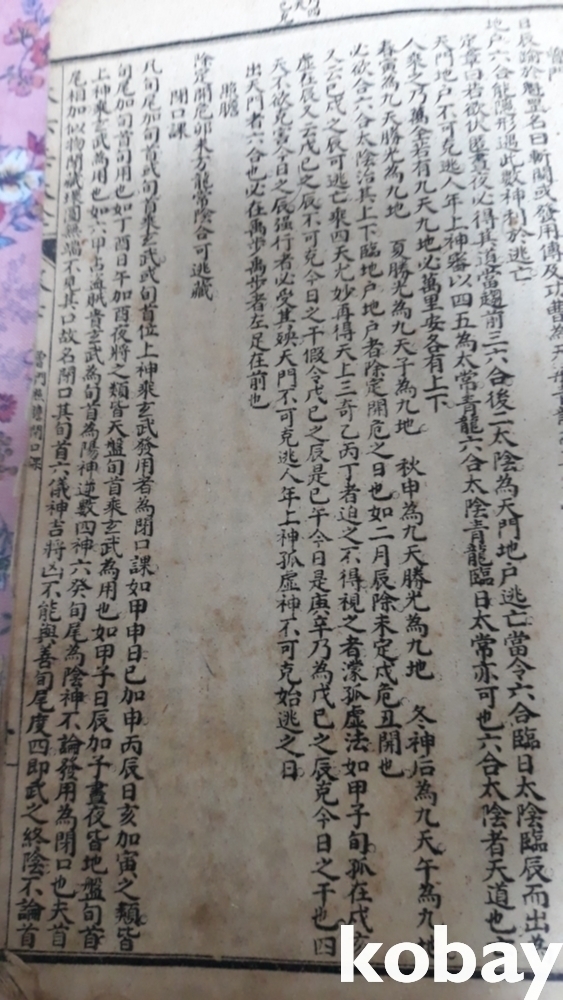 日辰諭於魁罡名曰斬關或發用傳及功曹為天
地戶六合能隱形遇此數神利於逃亡
定章曰若欲伏匿晝夜必得其道當趨前三六合後二太陰為天門地戶逃亡當令六合臨日太陰臨辰而出
天門地戶不可克逃人年上神審以四五為太常青龍六合太陰青龍臨日太常亦可也六合太陰者天道也
人乘之乃萬全若有九天九地必萬里安各有上下
春寅為九天勝光為九地 夏勝光為九天子為九地 秋申為九天勝光為九地 冬神后為九天午為九地
必欲合六合太陰治其上下臨地戶地戶者除定開危之日也如二月辰除未定戌危丑開也
又云已戌之辰可逃亡乘四天尤妙再得天上三奇乙丙丁者迫之不得視之者濛孤虛法如甲子旬孤在戌亥
虛在辰又云戊已之辰不可克今日之干假令戊已之辰是已午今日是庚辛乃為戊已之辰克今日之干也四
天不欲克寅今日之辰強行者必受其殃天門不可克逃人年上神孤虛神不可克始逃之日
出天門者六合也必在禹步禹步者左足在前也
除定開危卯未方龍常陰合可逃藏
閉口課
凡旬尾加旬首或旬首乘玄武武旬首位上神乘玄武發用者為閉口課如甲申日已加申丙辰日亥加寅之類皆
旬尾加旬首用也如丁酉日午加酉夜將之類皆天盤旬首乘玄武為用也如甲子日辰加子晝夜皆地盤旬首
上神乘玄武為用也如六甲占盜賊責玄武為旬首為陽神逆數四神六癸旬尾為陰神不論發用為閉口也夫首
尾相加似物閉緘環圜無端不見其口故名閉口其旬首六儀神吉將凶不能與善旬尾度四即武之終陰不論首
kobay